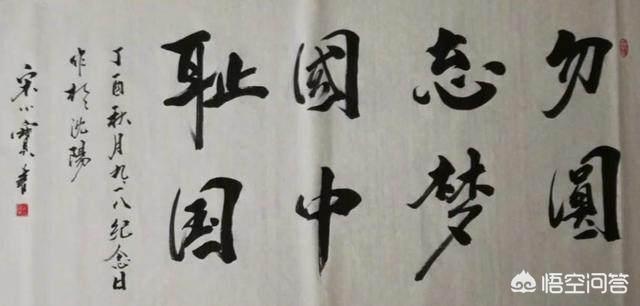 勿忘國耻
圓梦中国
丁酉秋月九一八纪念日
作於沈陽
宋小寳書
悟空问答